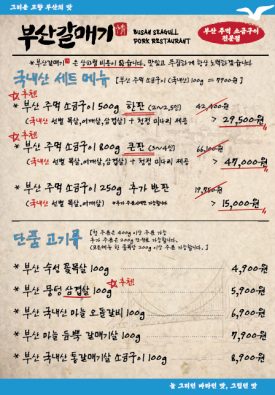 그리운 고향 부산의 맛
부산갈매기
BUSAN SEAGULL
PORK RESTAURANT
부산 주먹 소금구이
전문점
국내산 세트 메뉴 [부산 주먹 소금구이 (국내산) 100g = 7900원]
추천
* 부산 주먹 소금구이 500g 한판 (2~2.5인) 42,400원
(국내산 선별 목살, 삼겹살) > 29,500원
추천
* 부산 주먹 소금구이 800g 큰판 (3~4인) 66,100원
(국내산 선별 목살, 삼겹살) > 47,000원
* 부산 주먹 소금구이 250g 추가 반판 19,750원
(국내산 선별 목살, 삼겹살) > 15,000원
단품 고기류
* 부산 숙성 통목살 100g 4,900원
추천
* 부산 뭉텅 삼겹살 100g 5,900원
* 부산 국내산 마늘 오돌갈비 100g 6,900원
* 부산 마늘 듬뿍 갈매기살 100g 7,900원
* 부산 국내산 통갈매기살 소금구이 100g 8,900원
늘 그리던 바다인 맛, 그립던 맛